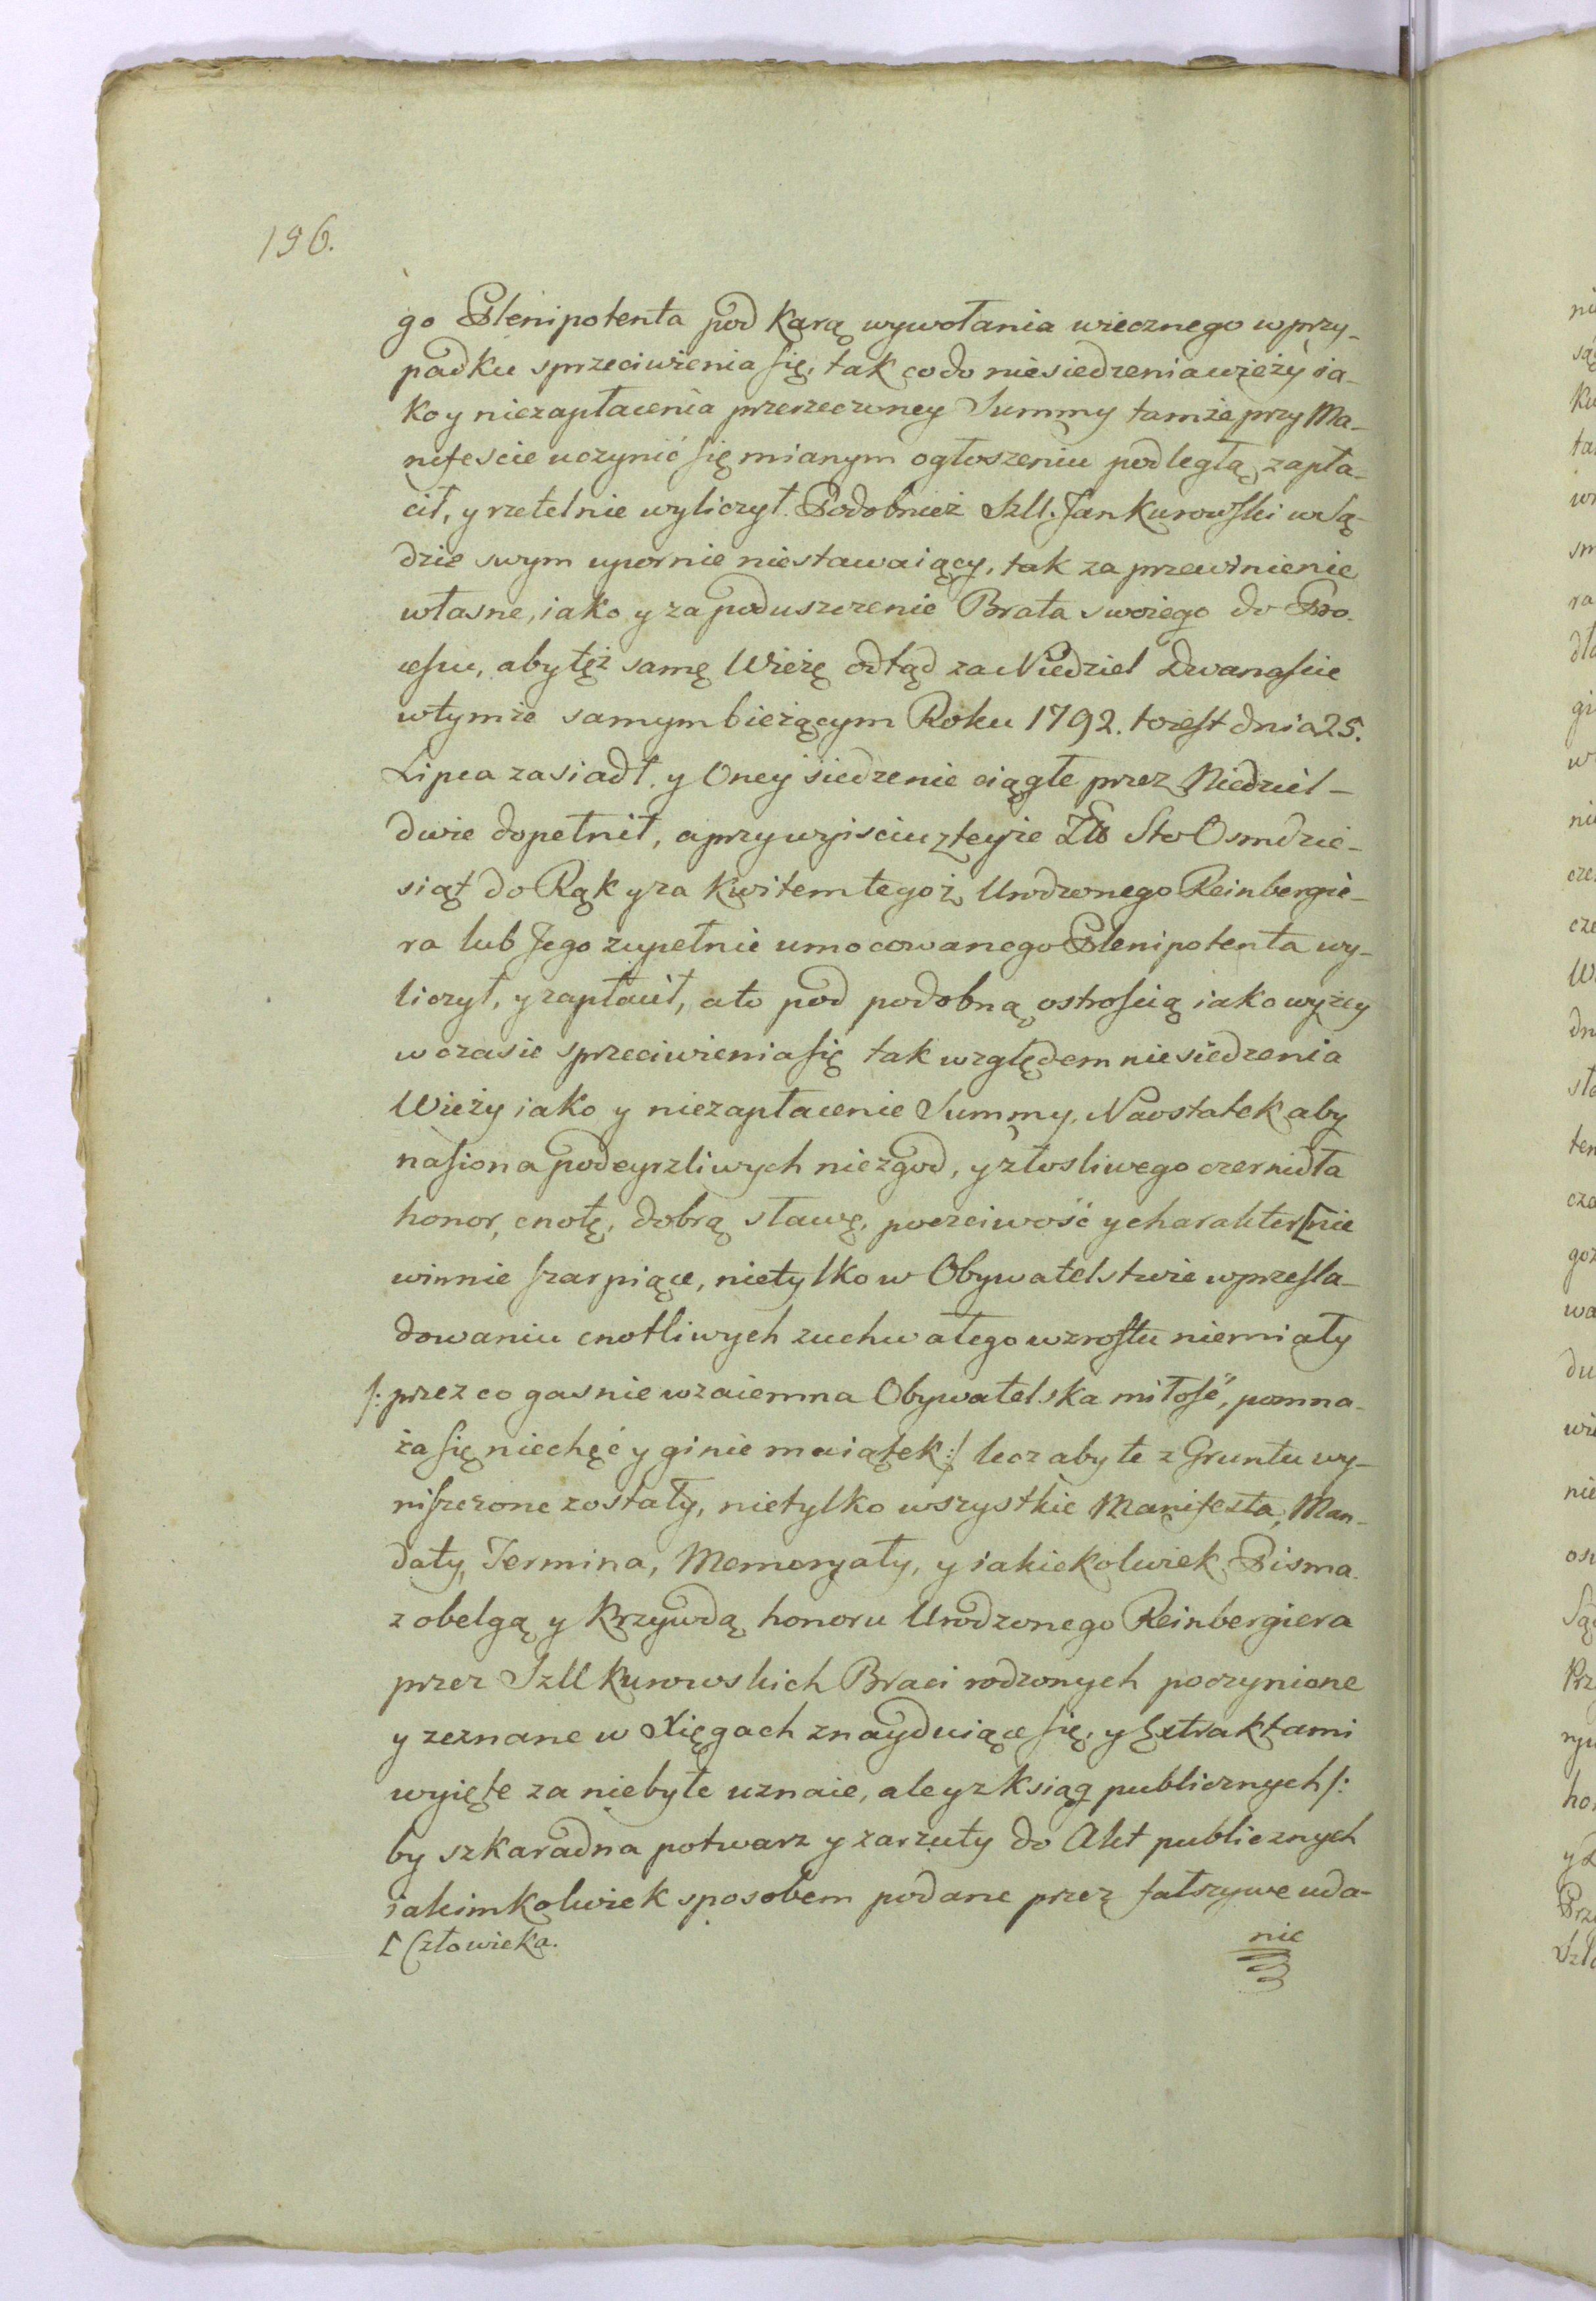 196.
go Plenipotenta pod karą wywołania wiecznego w przy-
padku sprzeciwienia się, tak co do niesiedzenia wieży ia-
ko y niezapłacenia przerzeczoney Summy tamże przy Ma-
nifeście uczynić się mianym ogłoszeniu podległą, zapła-
cił, y rzetelnie wyliczył. Podobnież Szll. Jan Kurowski w Są-
dzie swym upornie niestawaiący, tak za przewinienie
własne, iako y za poduszczenie Brata swoiego do Pro-
cessu, aby też samę Wieżę odtąd za Niedziel Dwanaście
w tymże samym bieżącym Roku 1792. to iest dnia 25.
Lipca zasiadł. y Oney siedzenie ciągłe przez Niedziel-
dwie dopełnił, a przy wyiściu z teyże Zł Sto Osmdzie-
siąt do Rąk y za Kwitem tegoż Urodzonego Reinbergie-
ra lub Jego zupełnie umocowanego Plenipotenta wy-
liczył, y zapłacił, a to pod podobną ostrością iako wyżey
w czasie sprzeciwienia się tak względem niesiedzenia
Wieży iako y niezapłacenie Summy. Naostatek aby
nasiona podeyrzliwych niezgod, y złosliwego czernidła
honor, cnotę, dobrą sławę, poczciwość y charakter [nie
winnie szarpiące, nietylko w Obywatelstwie w przesla-
dowaniu cnotliwych zuchwałego wzrostu niemiały
/: przez co gasnie wzaiemna Obywatelska miłość, pomna-
ża się niechęć y ginie maiątek :/ lecz aby te z Gruntu wy-
niszczone zostały, nietylko wszystkie Manifesta, Man-
daty, Termina, Memoryały, y iakiekolwiek Pisma
z obelgą y krzywdą honoru Urodzonego Reinbergiera
przez Szll Kurowskich Braci rodzonych poczynione
y zeznane w Xięgach znayduiące się, y Extraktami
wyięte za niebyłe uznaie, ale y z ksiąg publicznych /:
by szkaradna potwarz y zarzuty do Akt publicznych
iakimkolwiek sposobem podane przez fałszywe uda-
[ Człowieka.
nie